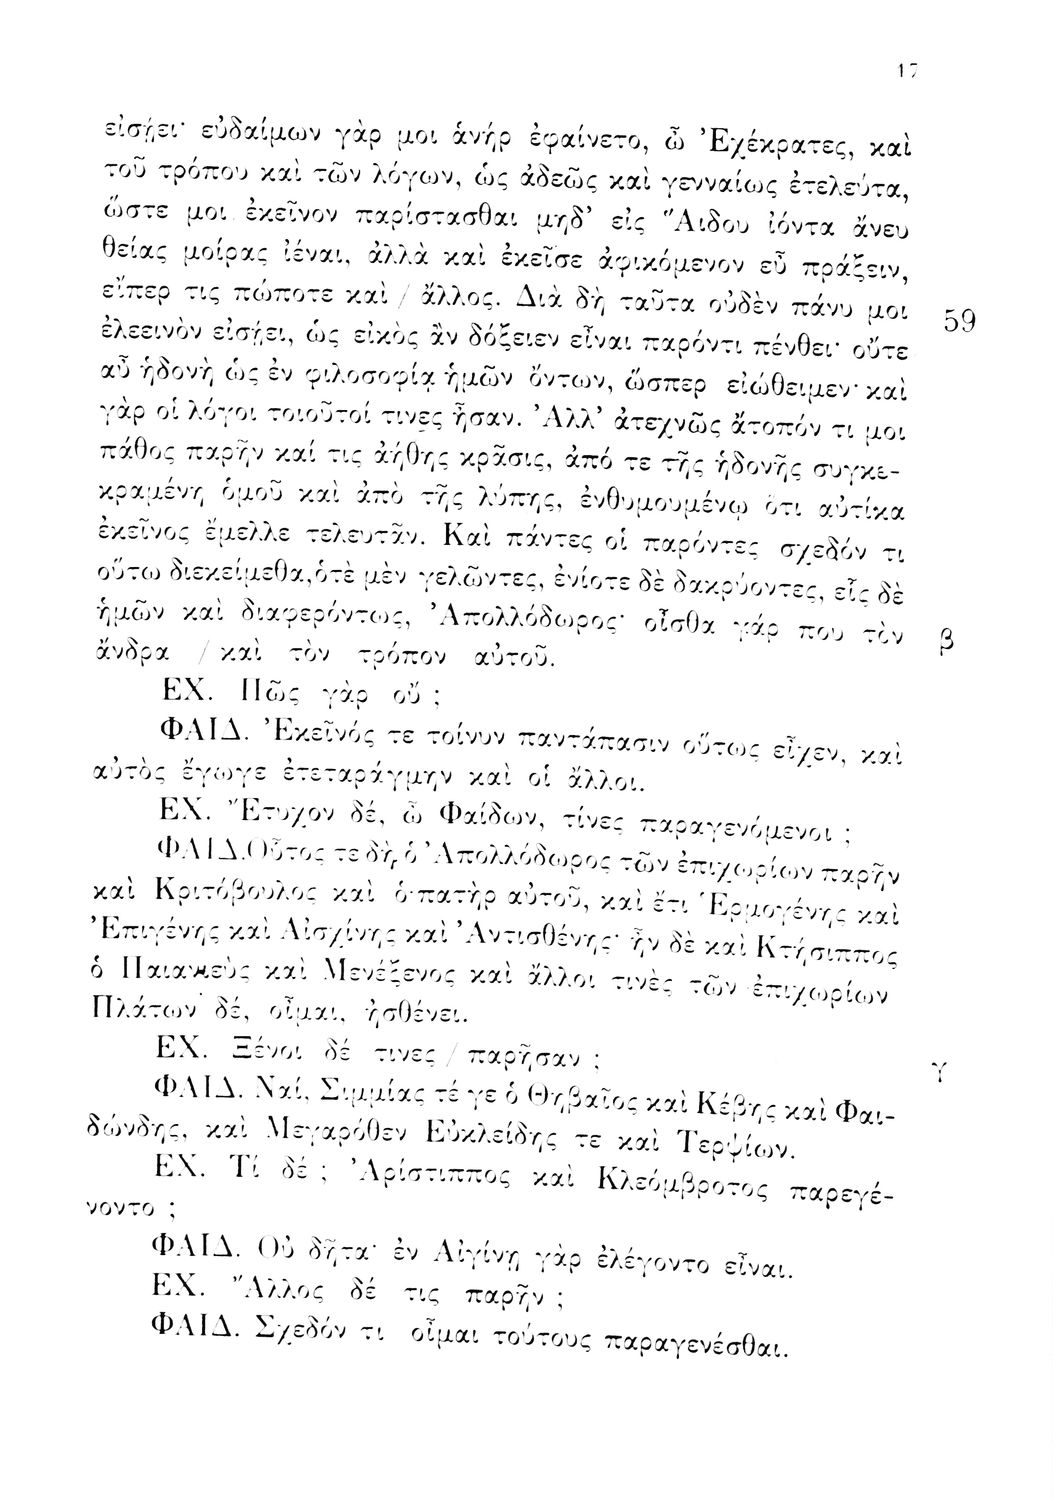 17
εἰσῄει· εὐδαίμων γάρ μοι ἁνὴρ ἐφαίνετο, ὦ Ἐχέκρατες, καὶ
τοῦ τρόπου καὶ τῶν λόγων, ὡς ἀδεῶς καὶ γενναίως ἐτελεύτα,
ὥστε μοι ἐκεῖνον παρίστασθαι μηδ’ εἰς Ἅιδου ἰόντα ἄνευ
θείας μοίρας ἰέναι, ἀλλὰ καὶ ἐκεῖσε ἀφικόμενον εὖ πράξειν,
εἴπερ τις πώποτε καὶ / ἄλλος. Διὰ δὴ ταῦτα οὐδὲν πάνυ μοι 59
ἐλεεινὸν εἰσῄει, ὡς εἰκὸς ἂν δόξειεν εἶναι παρόντι πένθει· οὔτε
αὖ ἡδονὴ ὡς ἐν φιλοσοφίᾳ ἡμῶν ὄντων, ὥσπερ εἰώθειμεν· καὶ
γὰρ οἱ λόγοι τοιοῦτοί τινες ἦσαν. Ἀλλ’ ἀτεχνῶς ἄτοπόν τι μοι
πάθος παρῆν καί τις ἀήθης κρᾶσις, ἀπό τε τῆς ἡδονῆς συγκε-
κραμένη ὁμοῦ καὶ ἀπὸ τῆς λύπης, ἐνθυμουμένῳ ὅτι αὐτίκα
ἐκεῖνος ἔμελλε τελευτᾶν. Καὶ πάντες οἱ παρόντες σχεδόν τι
οὕτω διεκείμεθα, ὁτὲ μὲν γελῶντες, ἐνίοτε δὲ δακρύοντες, εἷς δὲ
ἡμῶν καὶ διαφερόντως, Ἀπολλόδωρος· οἶσθα γάρ που τὸν β
ἄνδρα / καὶ τὸν τρόπον αὐτοῦ.
ΕΧ. Πῶς γὰρ οὔ ;
ΦΑΙΔ. Ἐκεῖνός τε τοίνυν παντάπασιν οὕτως εἶχεν, καὶ
αὐτὸς ἔγωγε ἐτεταράγμην καὶ οἱ ἄλλοι.
ΕΧ. Ἔτυχον δέ, ὦ Φαίδων, τίνες παραγενόμενοι ;
ΦΑΙΔ. Οὗτος τε δὴ ὁ Ἀπολλόδωρος τῶν ἐπιχωρίων παρῆν
καὶ Κριτόβουλος καὶ ὁ πατὴρ αὐτοῦ, καὶ ἔτι Ἑρμογένης καὶ
Ἐπιγένης καὶ Αἰσχίνης καὶ Ἀντισθένης· ἦν δὲ καὶ Κτήσιππος
ὁ Παιανιεὺς καὶ Μενέξενος καὶ ἄλλοι τινὲς τῶν ἐπιχωρίων
Πλάτων δέ, οἶμαι, ἠσθένει.
ΕΧ. Ξένοι δέ τινες / παρῆσαν ; γ
ΦΑΙΔ. Ναί, Σιμμίας τέ γε ὁ Θηβαῖος καὶ Κέβης καὶ Φαι-
δώνδης, καὶ Μεγαρόθεν Εὐκλείδης τε καὶ Τερψίων.
ΕΧ. Τί δέ ; Ἀρίστιππος καὶ Κλεόμβροτος παρεγέ-
νοντο ;
ΦΑΙΔ. Οὐ δῆτα· ἐν Αἰγίνῃ γὰρ ἐλέγοντο εἶναι.
ΕΧ. Ἄλλος δέ τις παρῆν ;
ΦΑΙΔ. Σχεδόν τι οἶμαι τούτους παραγενέσθαι.